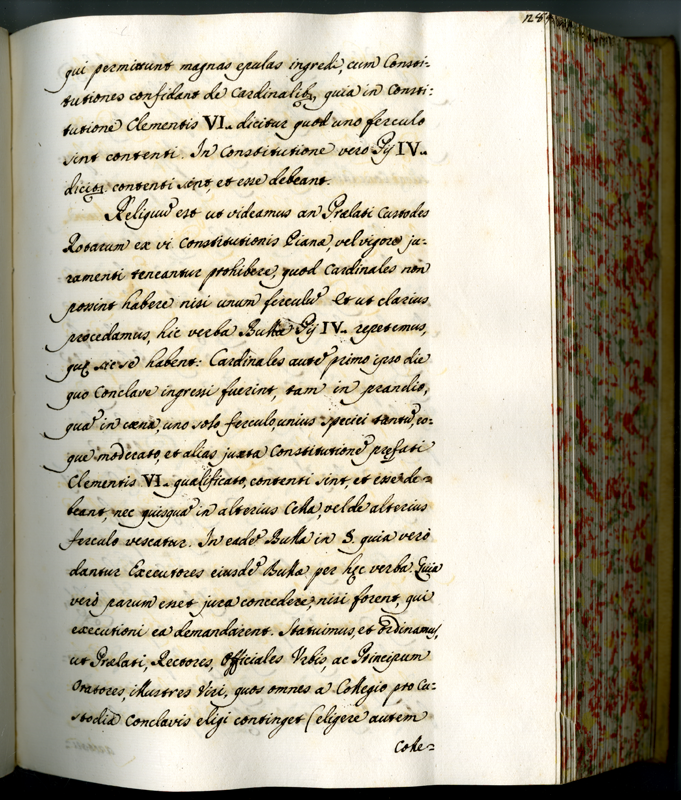 124
qui permittunt magnas epulas ingredi, cum Consti-
tutiones confidant de Cardinalib9, quia in Consti:
tutione Clementis VI. dicitur quod uno ferculo
sint contenti. In Constitutione vero Pij IV.
dicit9 contenti sint, et esse debeant.
Reliquũ est ut videamus an Prælati Custodes
Rotarum ex vi Constitutionis Piana, vel vigore ju-
ramenti teneantur prohibere, quod Cardinales non
possint habere nisi unum ferculũ. Et ut clarius
procedamus, hic verba Bulla Pij IV. repetemus,
quę sic se habent: Cardinales autẽ primo ipso die
quo Conclave ingressi fuerint, tam in prandio,
quã in cœna, uno solo ferculo, unius speciei tantũ, eo=
que moderato, et alias juxta Constitutionẽ prefati
Clementis VI. qualificato, contenti sint, et esse de=
beant, nec quisquã in alterius Cella, vel de alterius
ferculo vescatur. In eadẽ Bulla in §. quia verò
dantur Executores eiusdẽ Bulla per hęc verba. Quia
verò parum esset jura concedere, nisi forent, qui
executioni ea demandarent. Statuimus, et ordinamus,
ut Prælati, Rectores, Officiales Urbis, ac Principum
Oratores, illustres Viri, quos omnes a Collegio pro Cu=
stodia Conclavis eligi continget (eligere autem
Colle=